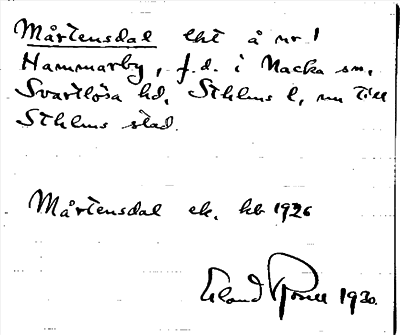 Mårtensdal lht å nr 1
Hammarby, f.d. i Nacka sn,
Svartlösa hd, Sthlms l, nu till
Sthlms stad.
Mårtensdal ek. kb 1926
Erland Rosell 1930.